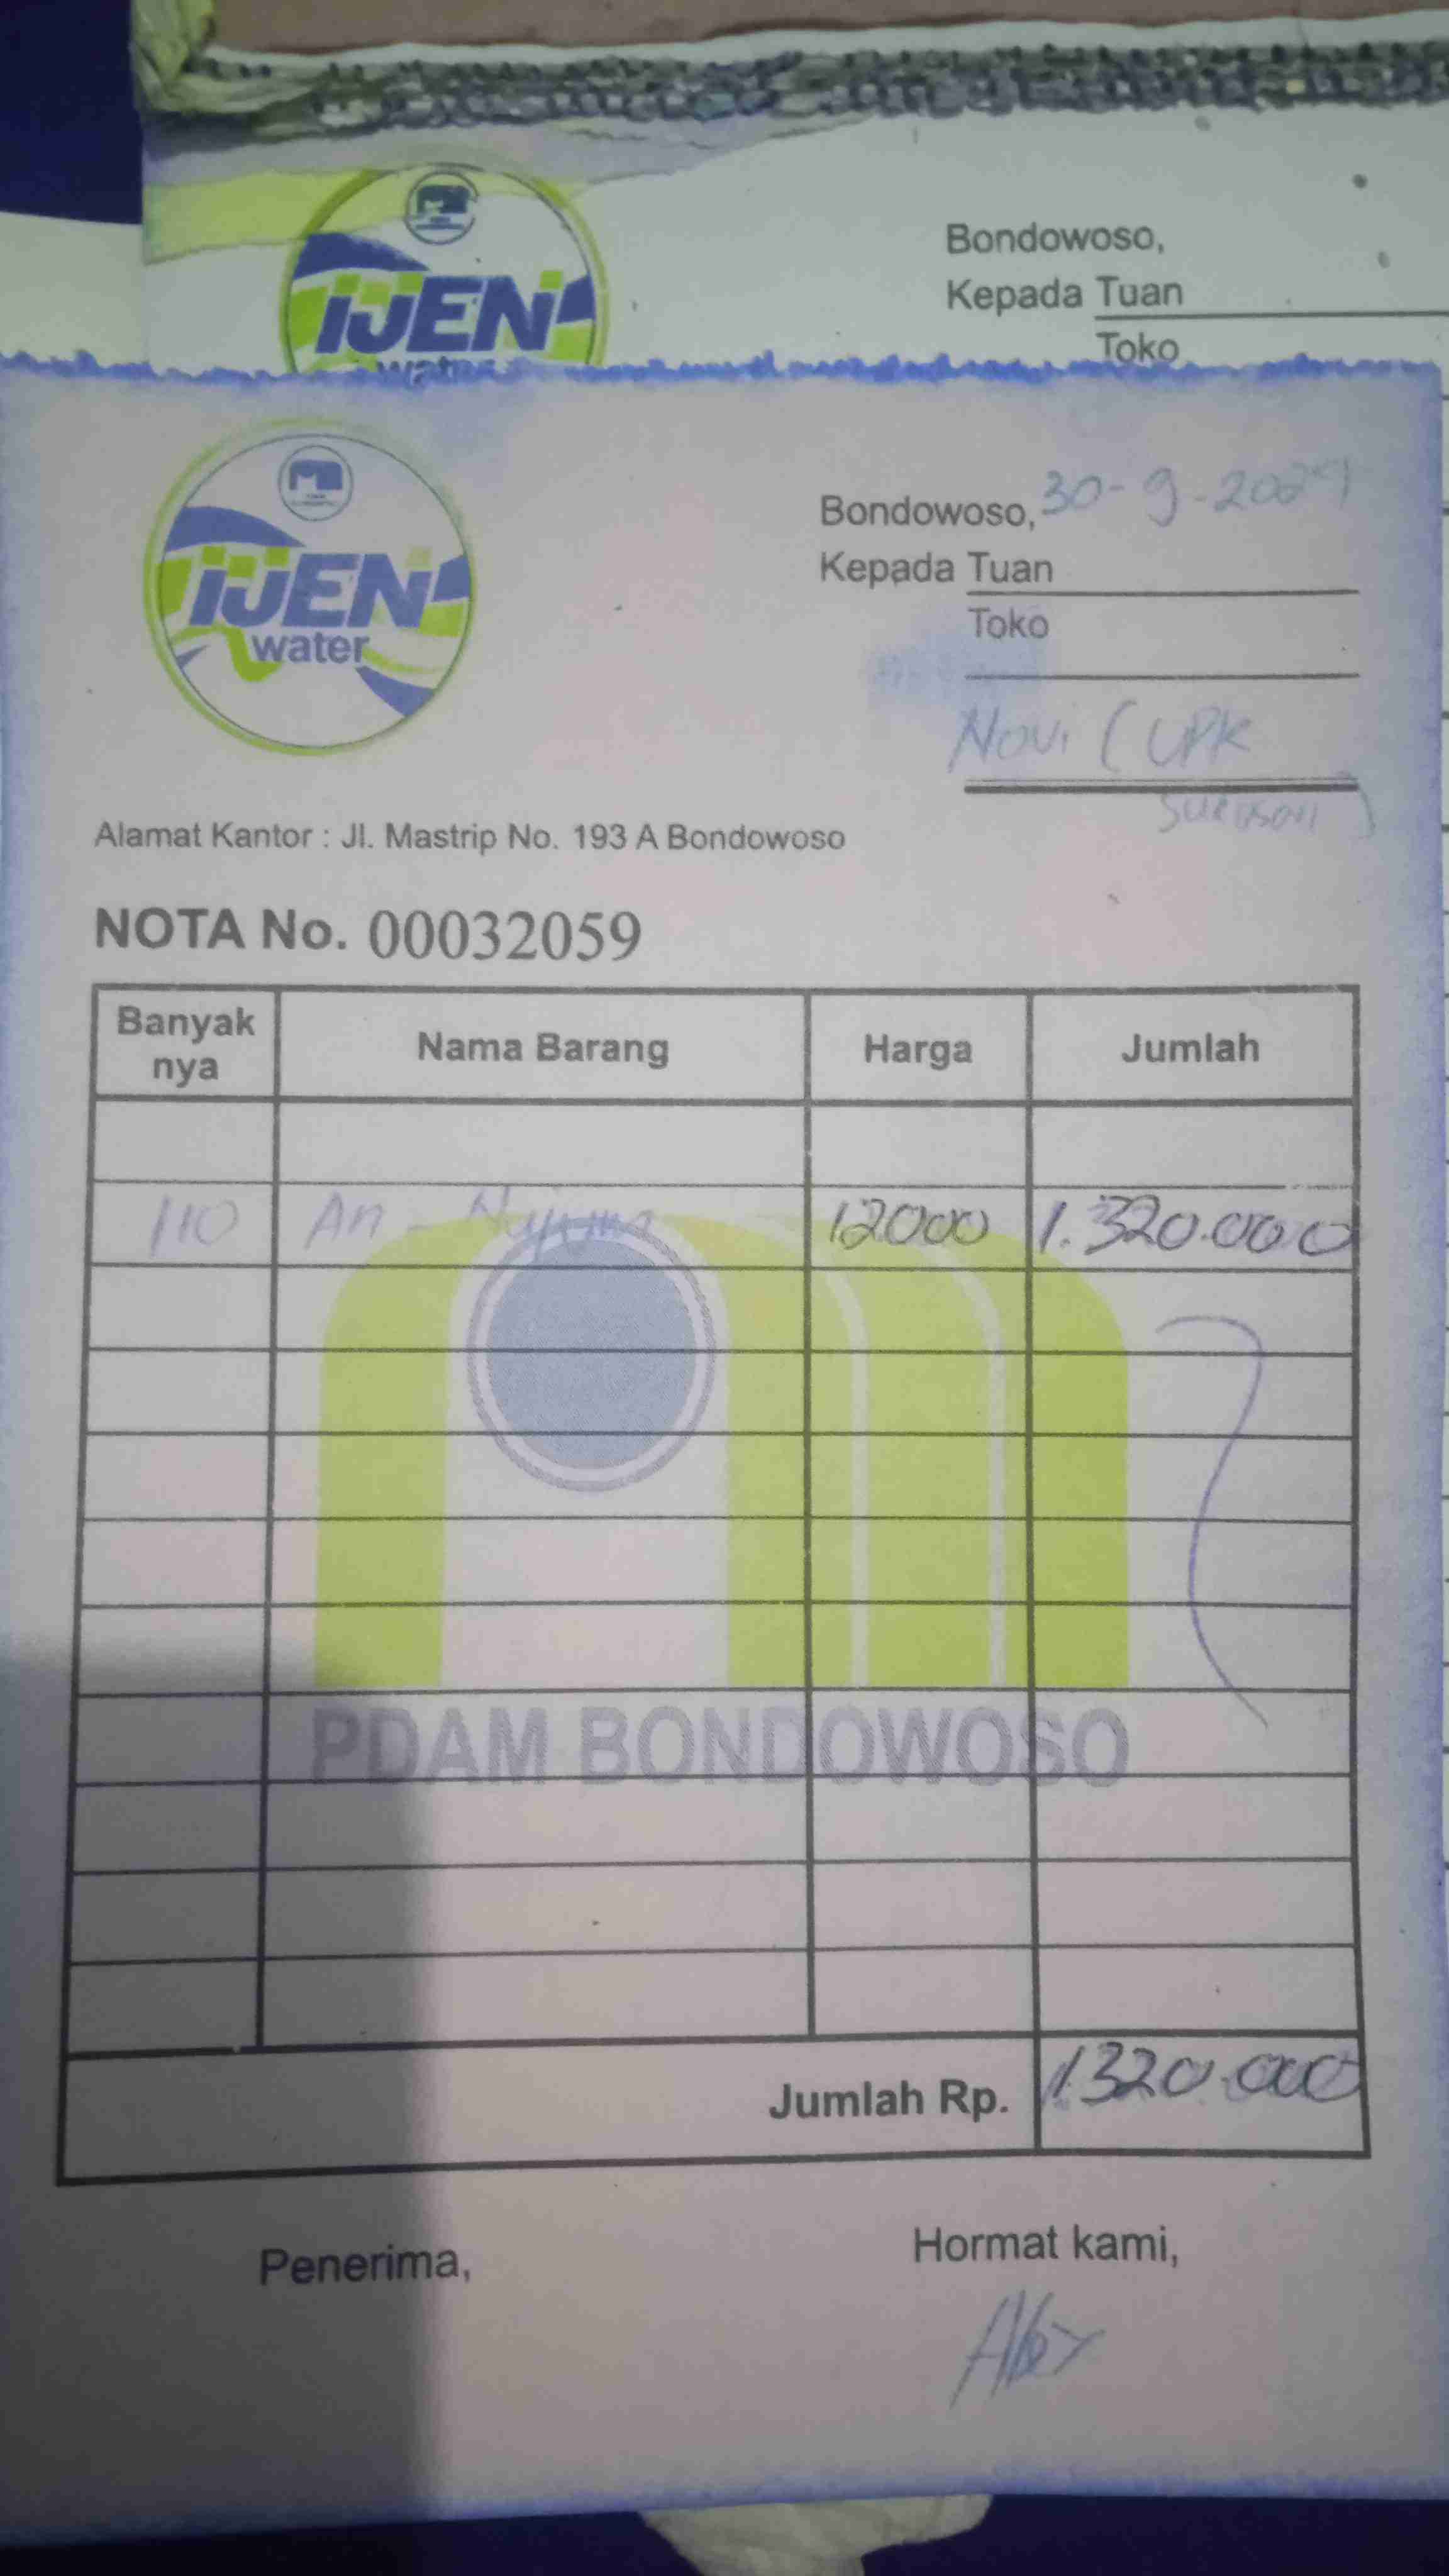 IJEN
water
Bondowoso,
Kepada Tuan
Toko
IJEN
water
Bondowoso, 30-9-2024
Kepada Tuan
Toko
Novi (UPK
Alamat Kantor : Jl. Mastrip No. 193 A Bondowoso
NOTA No. 00032059
Banyak nya Nama Barang Harga Jumlah
110 An-Nujum 12000 1.320.000
PDAM BONDOWOSO
Jumlah Rp. 1320.000
Penerima, Hormat kami,